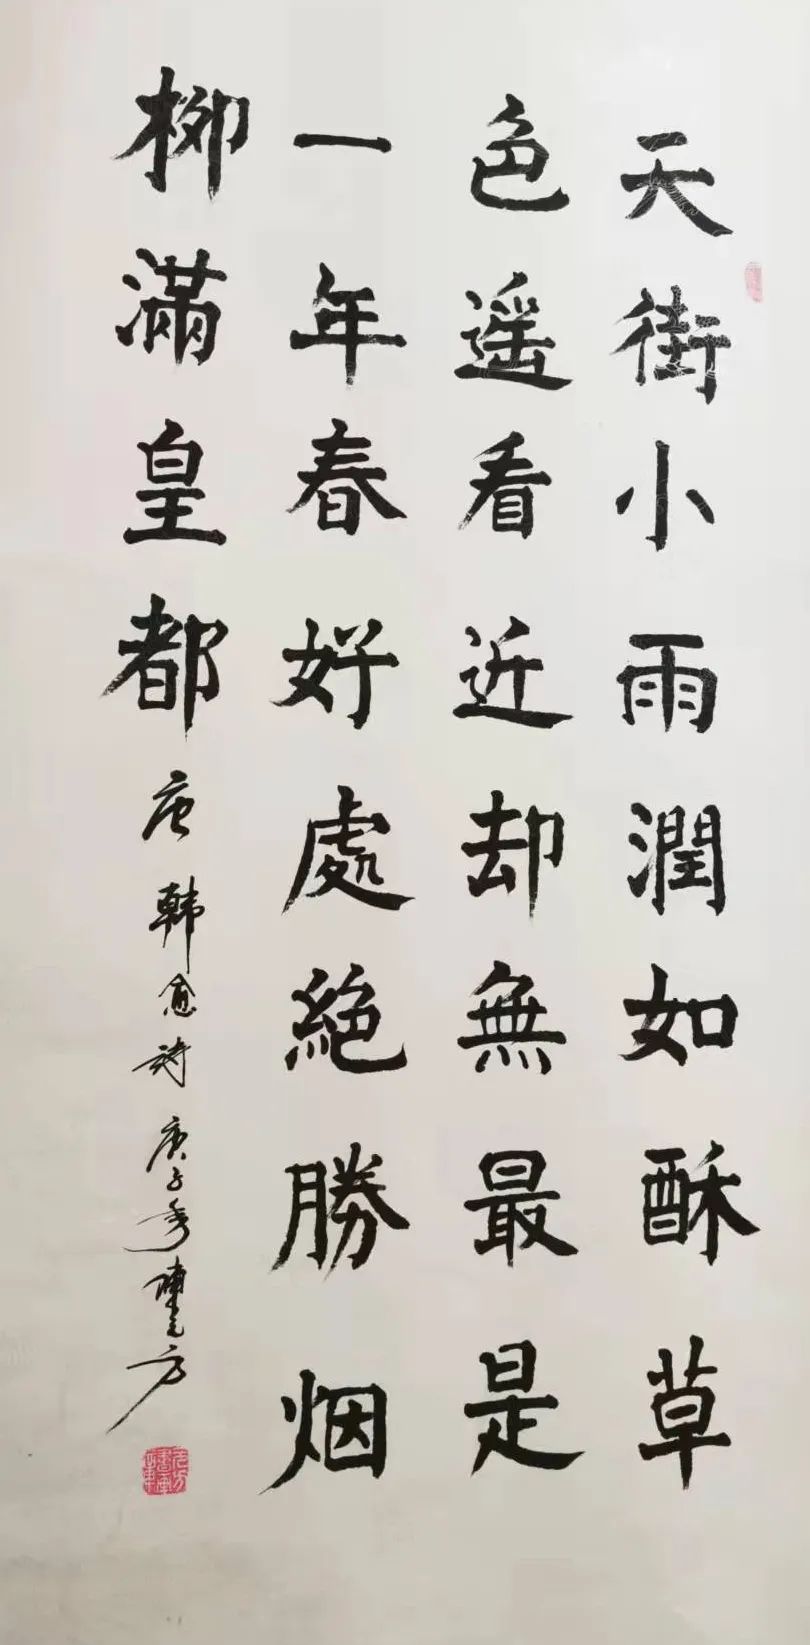 天街小雨潤如酥草
色遥看近却無最是
一年春好處絕勝烟
柳滿皇都
唐韓愈詩庚子秀陳元方